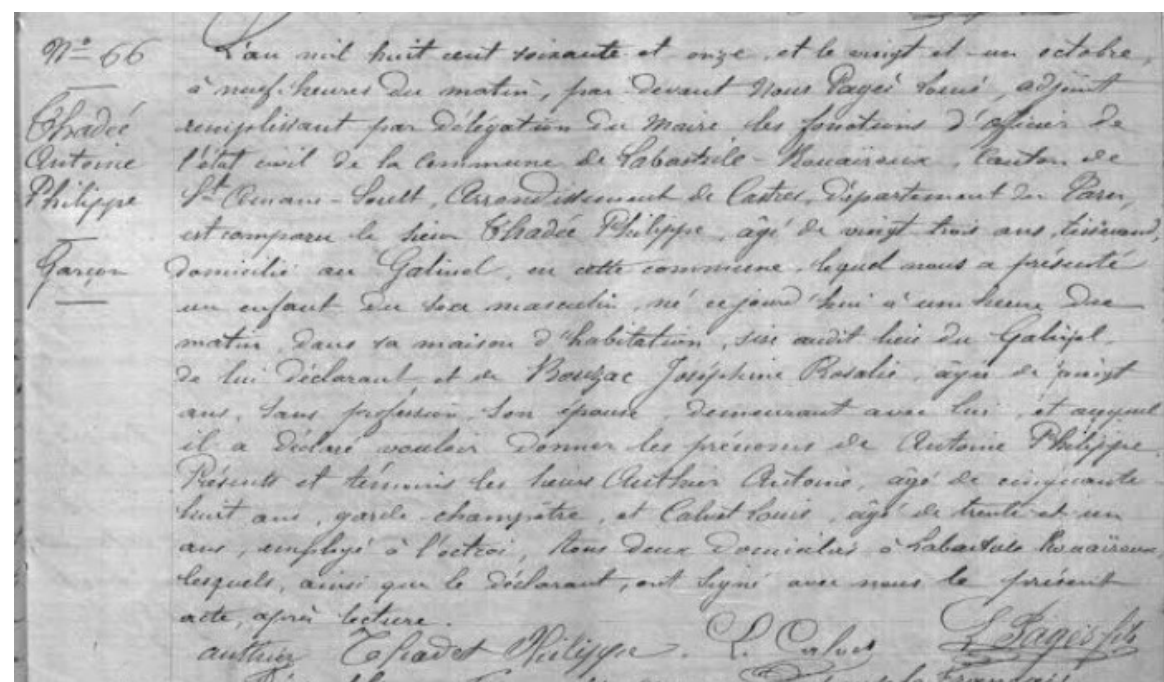 N° 66
Thadéé
Antoine
Philippe
Garçon
L'an mil huit cent soixante et onze, et le vingt et un octobre,
à neuf heures du matin, par devant Nous Pagès Louis, adjoint
remplissant par délégation du Maire les fonctions d'officier de
l'état civil de la Commune de Labastide-Rouairoux, Canton de
St Amans-Soult, Arrondissement de Castres, Département du Tarn,
est comparu le sieur Thadéé Philippe, âgé de vingt trois ans, tisserand,
domicilié au Galinel, en cette commune, lequel nous a présenté
un enfant du sexe masculin, né ce jourd'hui à une heure du
matin, dans sa maison d'habitation, sise audit lieu du Galinel,
de lui déclarant et de Bouzac Joséphine Rosalie, âgée de vingt
ans, sans profession, son épouse, demeurant avec lui, et auquel
il a déclaré vouloir donner les prénoms de Antoine Philippe.
Présents et témoins les sieurs Authier Antoine, âgé de cinquante-
huit ans, garde-champêtre, et Calvet Louis, âgé de trente et un
ans, employé à l'octroi, tous deux domiciliés à Labastide Rouairoux,
lesquels, ainsi que le déclarant, ont signé avec nous le présent
acte, après lecture.
authier Thadet Philippe. L. Calvet L Pagès fils